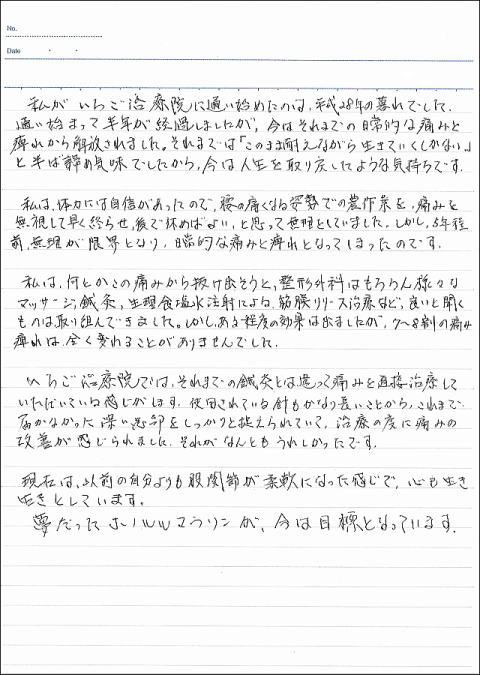 No.
Date
私がいちご治療院に通い始めたのは、平成28年の暮れでした。
通い始まって半年が経過しましたが、今はそれまでの日常的な痛みと
痺れから解放されました。それまでは「このまま耐えながら生きていくしかない。」
と半ば諦め気味でしたから、今は人生を取り戻したような気持ちです。
私は、体力には自信があったので、腰の痛くなる姿勢での農作業を、痛みを
無視して早く終らせ、後で休めばよい、と思って無理をしていました。しかし、5年程
前、無理が限界となり、日常的な痛みと痺れとなってしまったのです。
私は、何とかこの痛みから抜け出そうと、整形外科はもちろん様々な
マッサージ、鍼灸、生理食塩水注射による、筋膜リリース治療など、良いと聞く
ものは取り組んできました。しかし、ある程度の効果は出ましたが、7〜8割の痛み
痺れは、全く変わることがありませんでした。
いちご治療院では、それまでの鍼灸とは違って痛みを直接治療して
いただいている感じがします。使用されている針もかなり長いことから、これまで
届かなかった深い患部をしっかりと捉えられていて、治療の度に痛みの
改善が感じられました。それがなんともうれしかったです。
現在は、以前の自分よりも股関節が柔軟になった感じで、心も生き
生きとしています。
夢だったホノルルマラソンが、今は目標となっています。